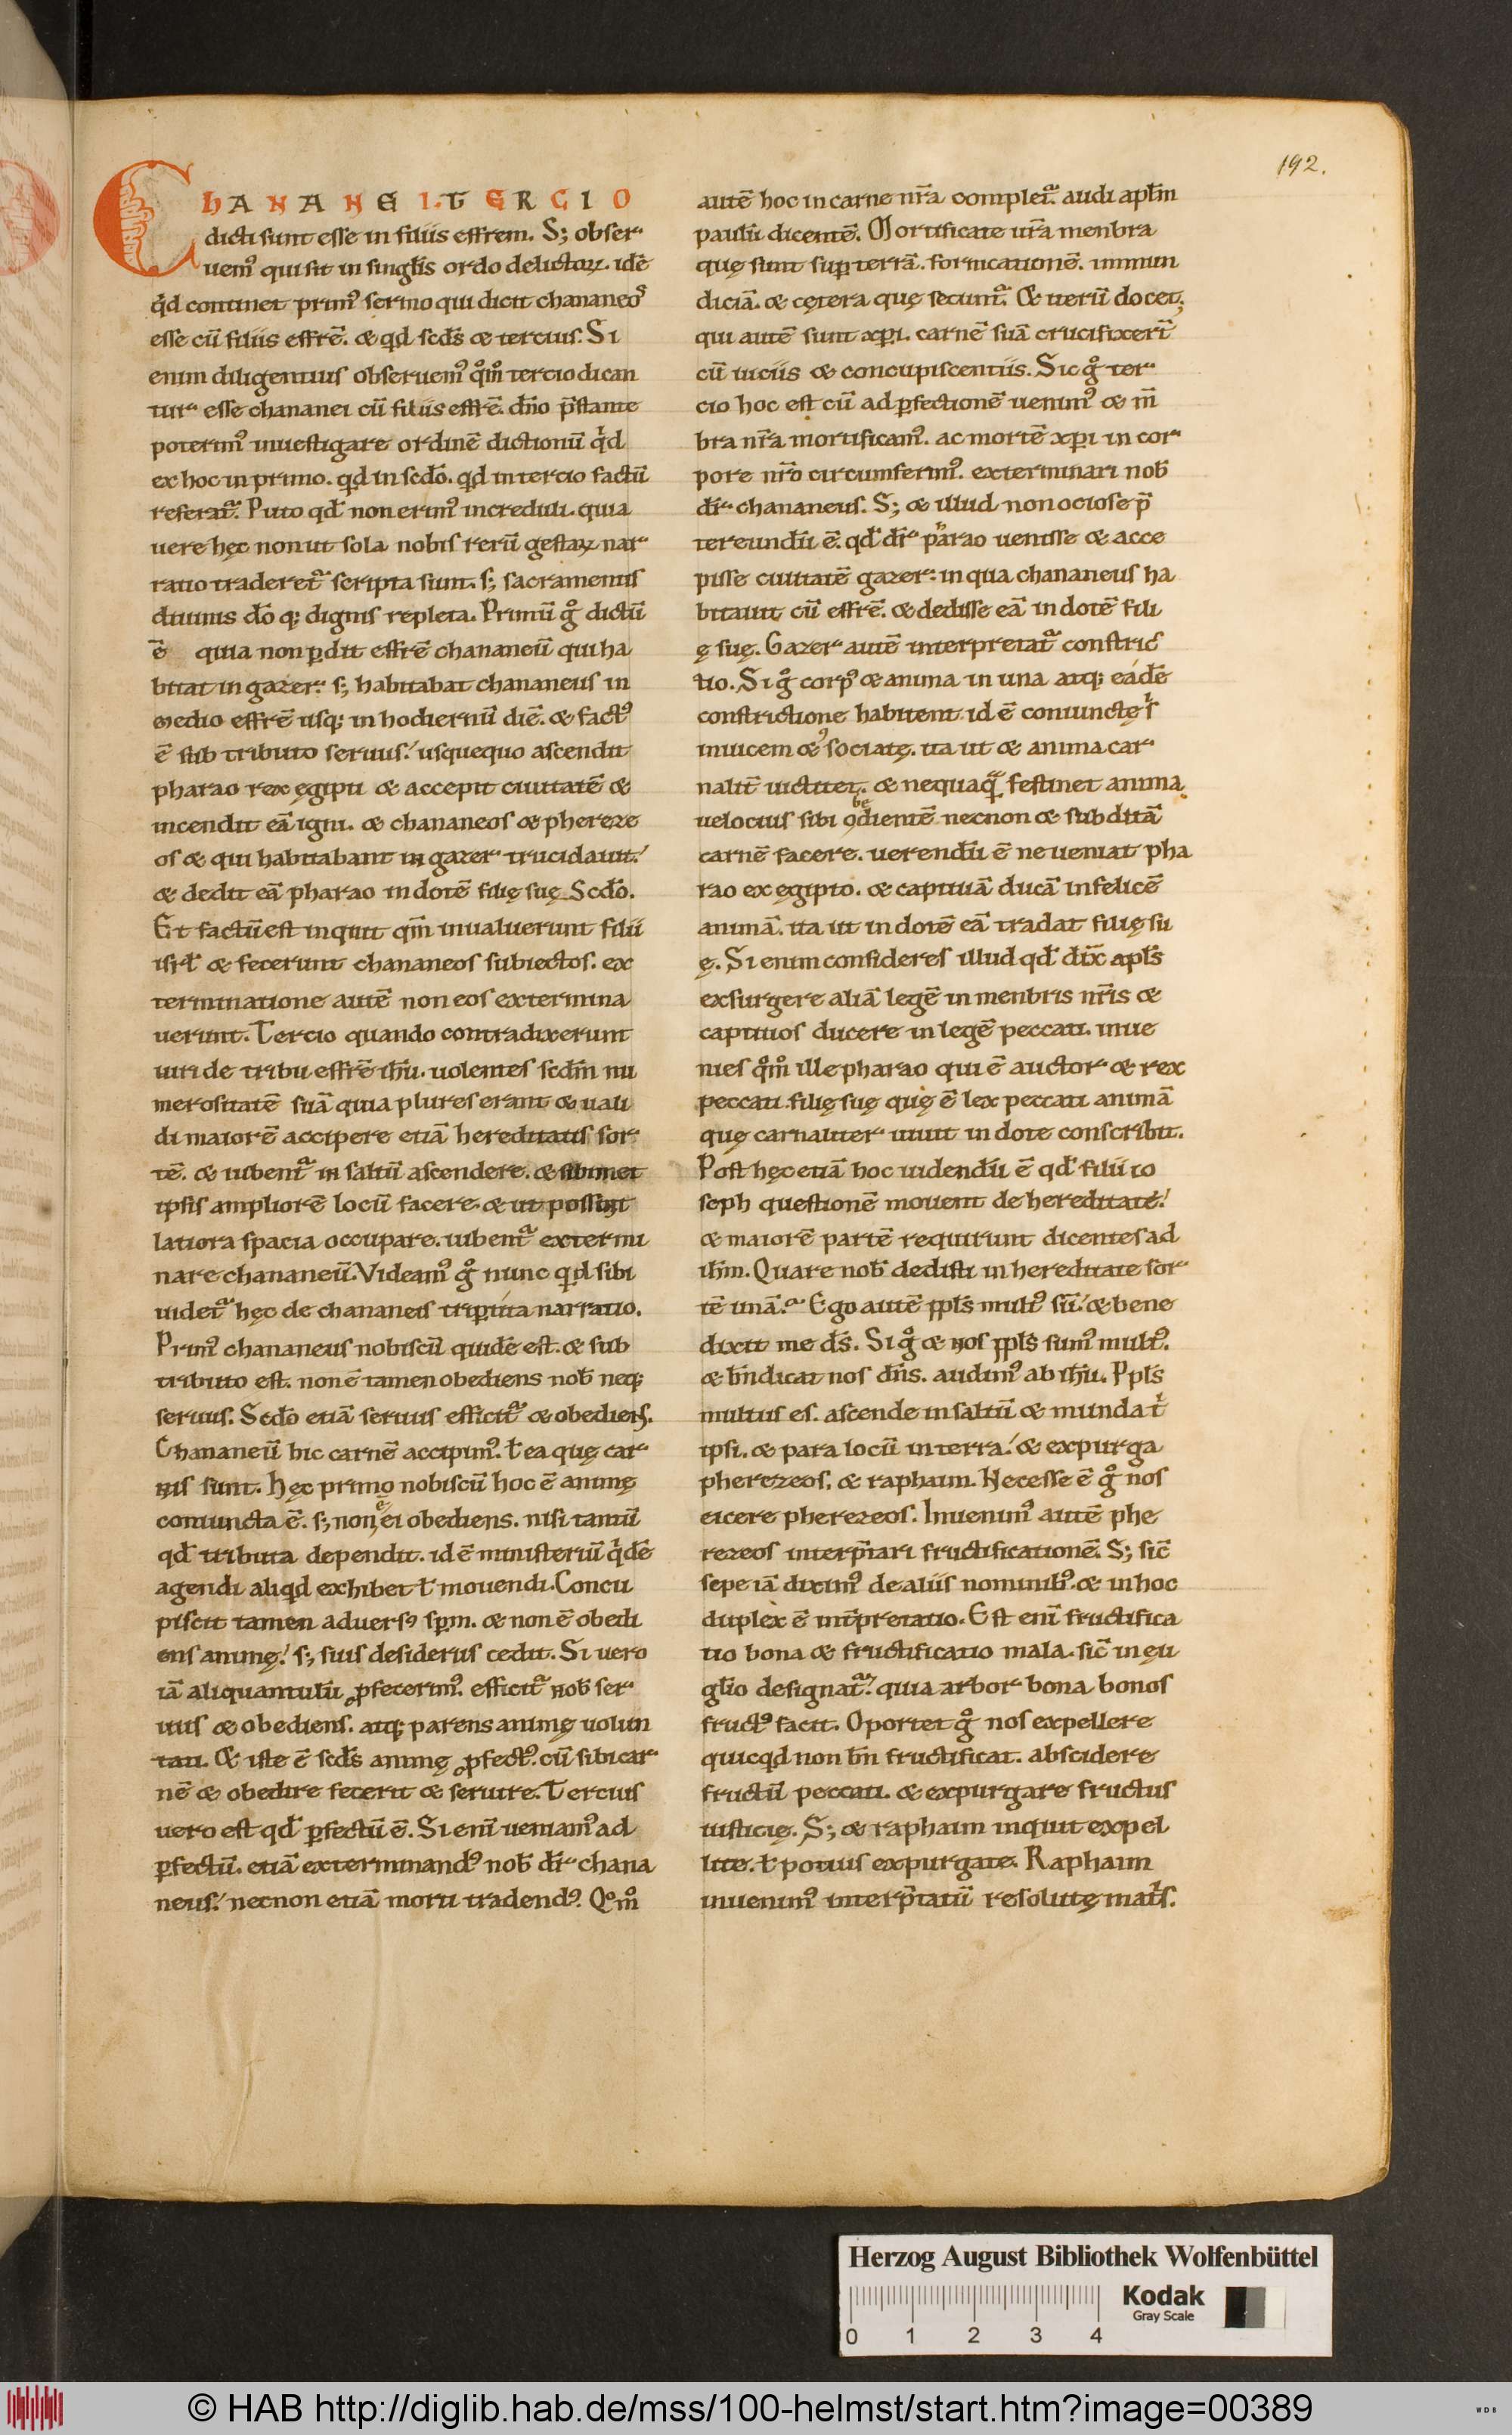 192.
CHANANEI. TERCIO
dicti sunt esse in filiis effrem. S; obser
uem⁹ qui sit in singlis ordo delictoꝝ. idē
qd continet prim⁹ sermo qui dicit chananeos
esse cū filiis effrē. & qd scds & tercius. Si
enim diligentius obseruem⁹ qm̊ tercio dican
tur esse chananei cū filiis effrē. dn̄o p̄stante
poterim⁹ inuestigare ordinē dictionū qd
ex hoc in primo. qd in scdō. qd in tercio factū
referat᷑. Puto qd non erim⁹ increduli. quia
uere hęc non ut sola nobis rerū gestaꝝ nar
ratio traderet᷑ scripta sunt. s; sacramentis
diuinis dō q; dignis repleta. Primū g̊ dictū
ē quia non ꝑdit effrē chananeū qui ha
bitat in gazer. s; habitabat chananeus in
medio effrē usq; in hodiernū diē. & fact⁹
ē sub tributo seruus. usquequo ascendit
pharao rex ęgipti & accepit ciuitatē &
incendit eā igni. & chananeos & phereze
os & qui habitabant in gazer trucidauit.
& dedit eā pharao in dotē filię suę. Scdō.
Et factū est inquit qm̄ inualuerunt filii
isrł & fecerunt chananeos subiectos. ex
terminatione autē non eos extermina
uerunt. Tercio quando contradixerunt
uiri de tribu effrē ihū. uolentes scdm nu
merositatē suā quia plures erant & uali
di maiorē accipere etiā hereditatis sor
tē. & iubent᷑ in saltū ascendere. & sibimet
ipsis ampliorē locū facere. & ut possint
latiora spacia occupare. iubent᷑ extermi
nare chananeū. Videam⁹ g̊ nunc quid sibi
uidet᷑ hęc de chananeis triꝑtita narratio.
Prim⁹ chananeus nobiscū quidē est. & sub
tributo est. non ē tamen obediens nob neq;
seruus. Scdō etiā seruus efficit᷑ & obediens.
Chananeū hic carnē accipim⁹. ł ea quę car
nis sunt. Hęc primo nobiscū hoc ē animę
coniuncta ē. s; non ē ei obediens. nisi tantū
qd tributa dependit. id ē ministeriū qdē
agendi aliqd exhibet ł mouendi. Concu
piscit tamen aduers⁹ spm. & non ē obedi
ens animę. s; suis desideriis cedit. Si uero
iā aliquantulū ꝓfecerim⁹. efficit᷑ nob ser
uus & obediens. atq; parens animę uolun
tati. & iste ē scds animę ꝓfect⁹. cū sibi car
nē & obedire fecerit & seruire. Tercius
uero est qd ꝑfectū ē. Si enī ueniam⁹ ad
ꝑfectū. etiā exterminand⁹ nob dr̄ chana
neus. necnon etiā morti tradend⁹. Qm̊
autē hoc in carne nr̄a complet᷑. audi aplm
paulū dicentē. Mortificate ur̄a menbra
quę sunt sup terrā. fornicationē. inmun
diciā. & cętera quę secunt᷑. & uerū docet;
qui autē sunt xp̄i. carnē suā crucifixer̄
cū uiciis & concupiscentiis. Sic g̊ ter
cio hoc est cū ad ꝑfectionē uenim⁹ & m̄
bra nr̄a mortificam⁹. ac mortē xp̄i in cor
pore nr̄o circumferim⁹. exterminari nob
dr̄ chananeus. S; & illud non ociose p̄
tereundū ē. qd dr̄ pharao uenisse & acce
pisse ciuitatē gazer. in qua chananeus ha
bitauit cū effrē. & dedisse eā in dotē fili
ę suę. Gazer autē interpretat᷑ constric
tio. Si g̊ corp⁹ & anima in una atq; eadē
constrictione habitent. id ē coniunctę s
inuicem & sociatę. ita ut & anima car
nalit̄ uictitet. & nequaq festinet anima
uelocius sibi ꝯdbeientē necnon & subditā
carnē facere. uerendū ē ne ueniat pha
rao ex ęgipto. & captiuā ducā infelicē
animā. ita ut in dotē eā tradat filię su
ę. Si enim consideres illud qd dix̄ apls
exsurgere aliā legē in menbris nr̄is &
captiuos ducere in legē peccati. inue
nies qm̊ ille pharao qui ē auctor & rex
peccati. filię suę quę ē lex peccati animā
quę carnaliter uiuit in dote conscribit.
Post hęc etiā hoc uidendū ē qd filii io
seph questionē mouent de hereditate.
& maiorē partē requirunt dicentes ad
ihm. Quare nob dedisti in hereditate sor
tē unā? Ego autē ppls mult⁹ sū. & bene
dixit me ds. Si g̊ & nos ppls sum⁹ mult⁹.
& bn̄dicat nos dn̄s. audim⁹ ab ihū. Ppls
multus es. ascende in saltū & munda t
ipsi. & para locū in terra. & expurga
pherezeos. & raphaim. Necesse ē g̊ nos
eicere pherezeos. Inuenim⁹ autē phe
rezeos interp̄tari fructificationē. S; sic̄
sepe iā dixim⁹ de aliis nominib⁹. & in hoc
duplex ē int̄pretatio. Est enī fructifica
tio bona & fructificatio mala. sic̄ in eu
glio designat᷑. quia arbor bona bonos
fruct⁹ facit. Oportet g̊ nos expellere
quicqd non bn̄ fructificat. abscidere
fructū peccati. & expurgare fructus
iusticię. S; & raphaim inquit expel
lite. ł potius expurgate. Raphaim
inuenim⁹ interp̄tatū resolutę mat̄s.
Herzog August Bibliothek Wolfenbüttel
Kodak
Gray Scale
0 1 2 3 4
© HAB http://diglib.hab.de/mss/100-helmst/start.htm?image=00389
WDB